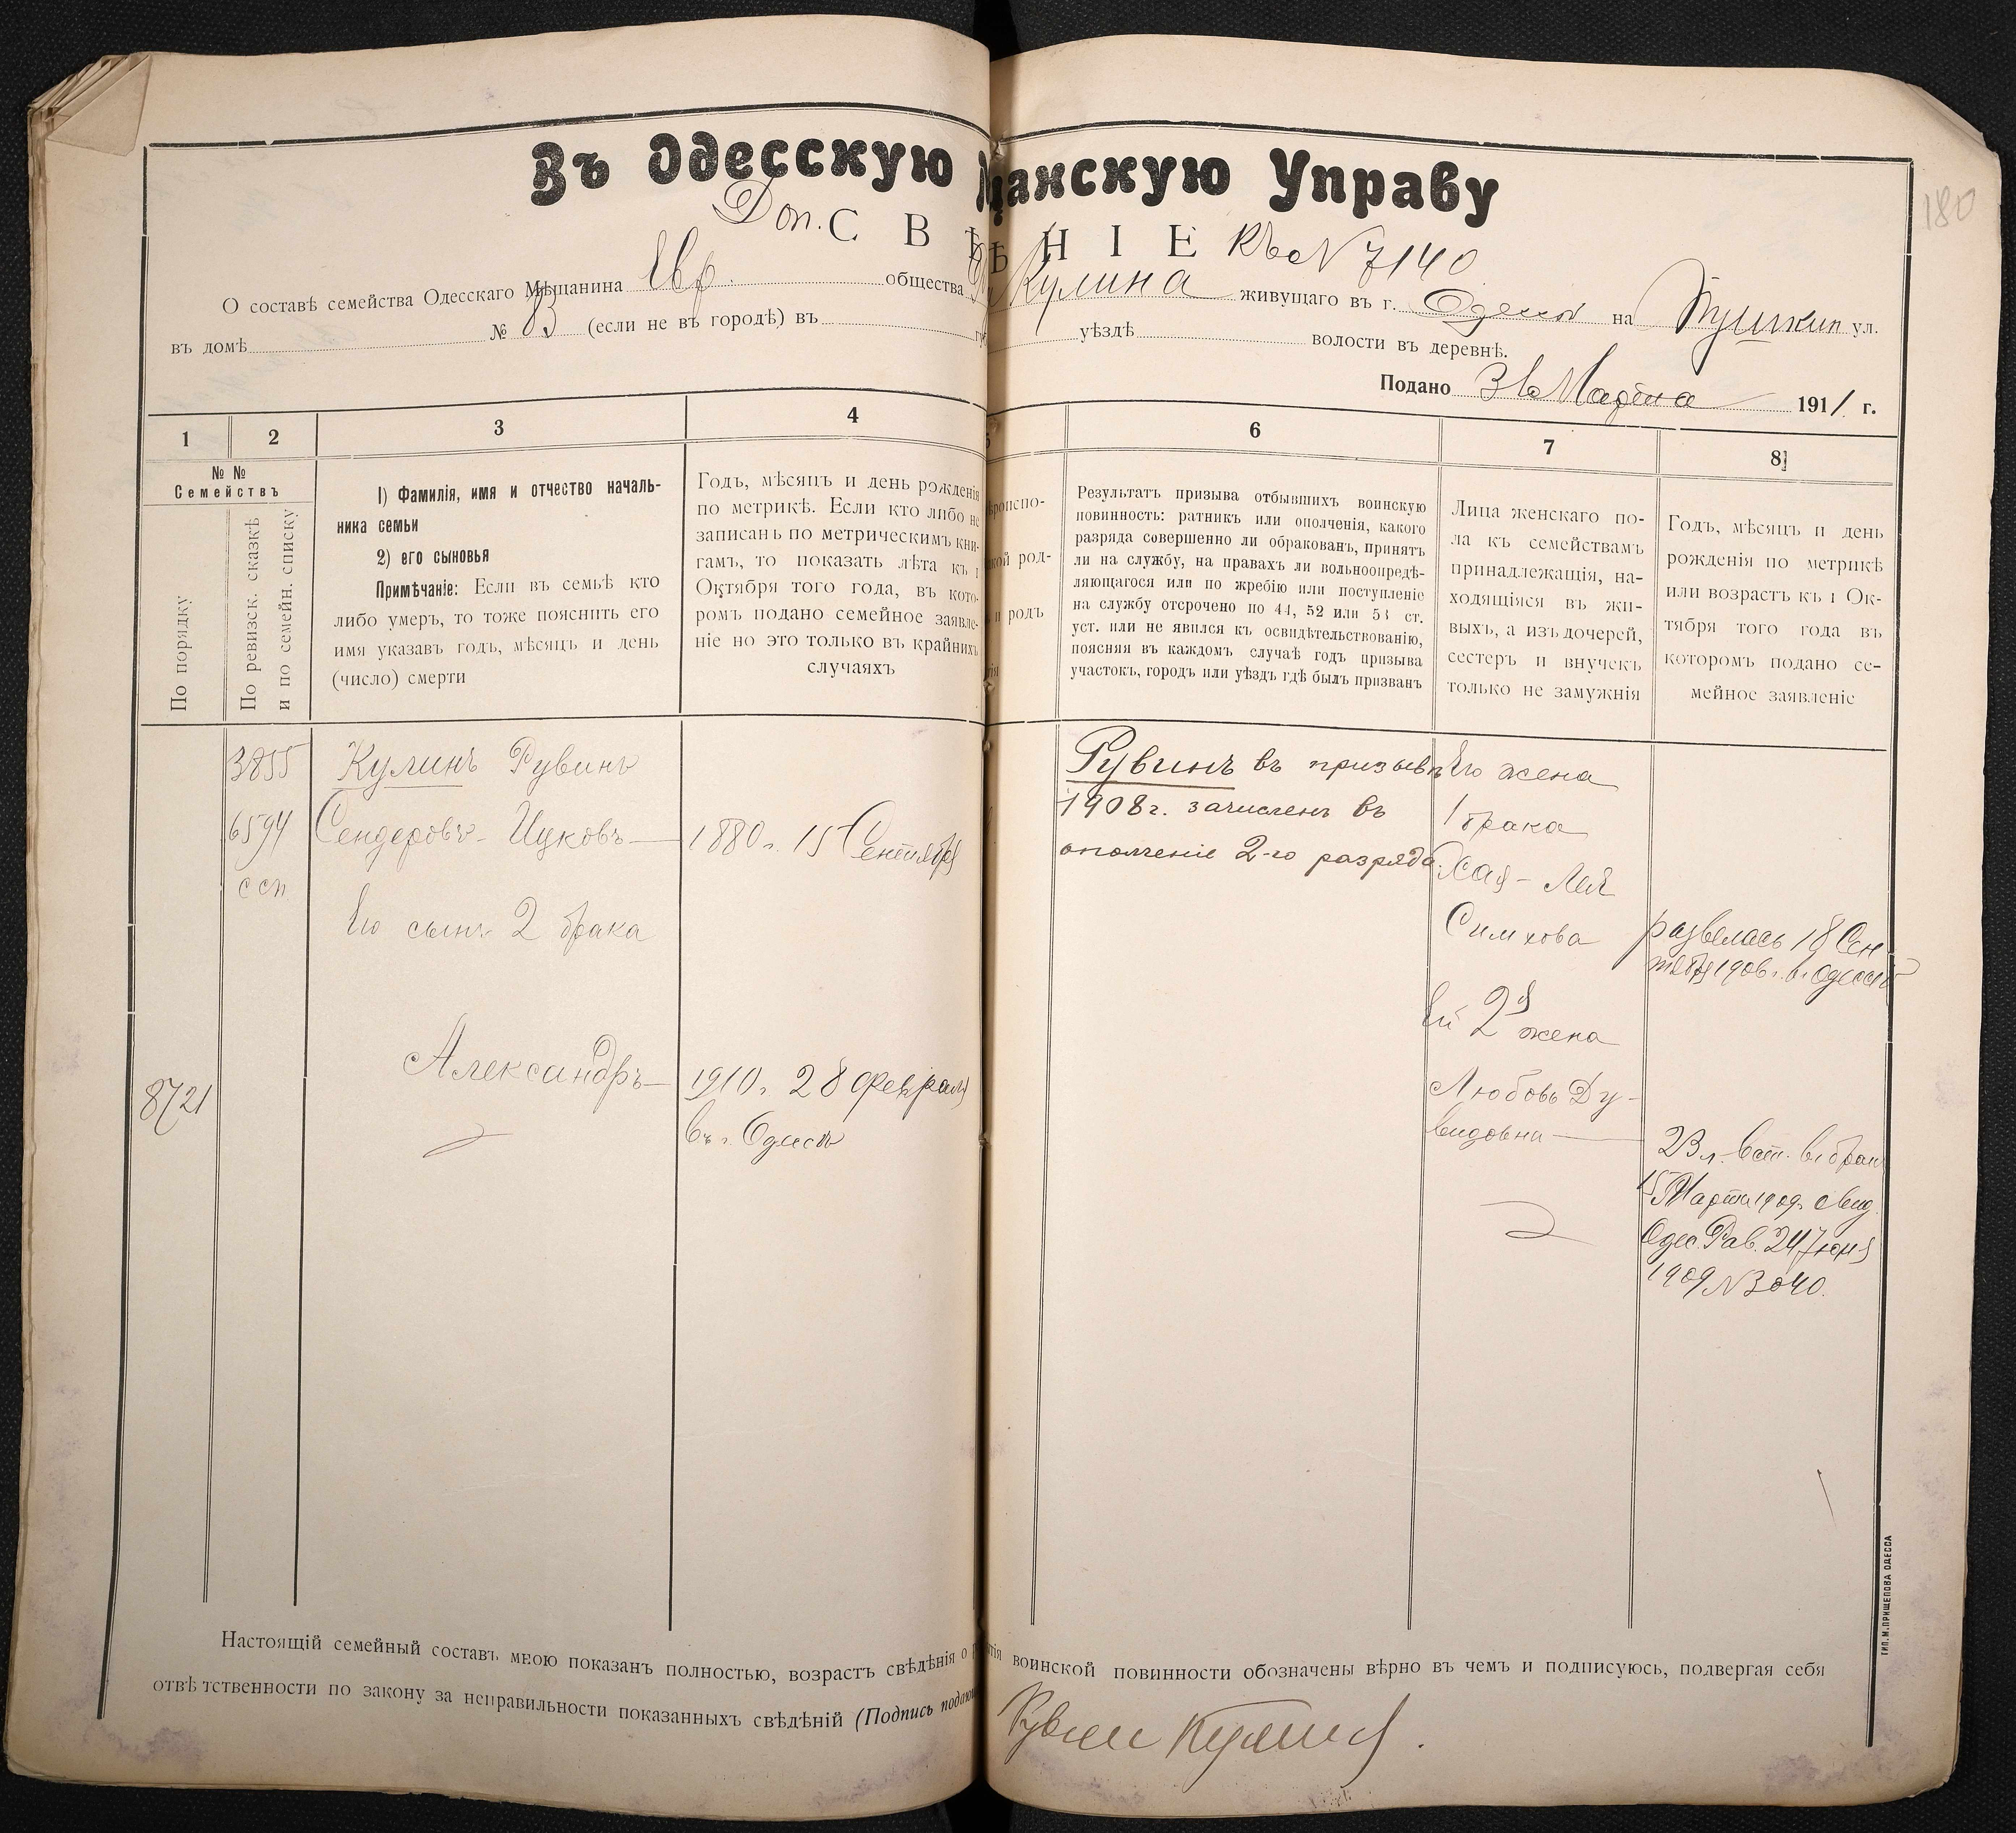 Въ Одесскую щанскую Управу
180
Доп. СВѢ НІЕ къ № 7140
О составѣ семейства Одесскаго Мѣщанина Евр. общества Кулина живущаго въ г. Одессѣ на Пушкин ул.
въ домѣ № 83 (если не въ городѣ) въ уѣздѣ волости въ деревнѣ.
Подано 3го Марта 1911 г.
1 2 3 4 6 7 8
№ №
Семействъ
По порядку
По ревизск. сказкѣ
и по семейн. списку
1) Фамилія, имя и отчество началь-
ника семьи
2) его сыновья
Примѣчаніе: Если въ семьѣ кто
либо умеръ, то тоже пояснить его
имя указавъ годъ, мѣсяцъ и день
(число) смерти
Годъ, мѣсяцъ и день рожденія
по метрикѣ. Если кто либо не
записанъ по метрическимъ кни-
гамъ, то показать лѣта къ 1
Октября того года, въ кото-
ромъ подано семейное заявле-
ніе но это только въ крайнихъ
случаяхъ
ѣроиспо-
кой род-
и родъ
Результатъ призыва отбывшихъ воинскую
повинность: ратникъ или ополченія, какого
разряда совершенно ли обракованъ, принятъ
ли на службу, на правахъ ли вольноопредѣ-
ляющагося или по жребію или поступленіе
на службу отсрочено по 44, 52 или 53 ст.
уст. или не явился къ освидѣтельствованію,
поясняя въ каждомъ случаѣ годъ призыва
участокъ, городъ или уѣздъ гдѣ былъ призванъ
Лица женскаго по-
ла къ семействамъ
принадлежащія, на-
ходящіяся въ жи-
выхъ, а изъ дочерей,
сестеръ и внучекъ
только не замужнія
Годъ, мѣсяцъ и день
рожденія по метрикѣ
или возрастъ къ 1 Ок-
тября того года въ
которомъ подано се-
мейное заявленіе
3855
6594
ссп
8721
Кулинъ Рувинъ
Сендеровъ-Ицковъ
Его сынъ 2 брака
Александръ
1880 г. 15 Сентября
1910 г. 28 февраля
въ г. Одессѣ
Рувинъ въ призывѣ
1908 г. зачисленъ въ
ополченіе 2-го разряда.
Его жена
1 брака
Хая-Лея
Симхова
Ей 2я жена
Любовь Ду-
видовна
развелась 18 Сен-
тября 1906 г. в г. Одессѣ
23 л. вст. въ брак
15 Марта 1909 г. свид.
Одес. Рав. 24 Іюня
1909 № 3040.
Настоящій семейный составъ мною показанъ полностью, возрастъ свѣдѣнія о воинской повинности обозначены вѣрно въ чемъ и подписуюсь, подвергая себя
отвѣтственности по закону за неправильности показанныхъ свѣдѣній (Подпись подаю
Рувин Кулин
ТИП. М. ПРИЩЕПОВА ОДЕССА